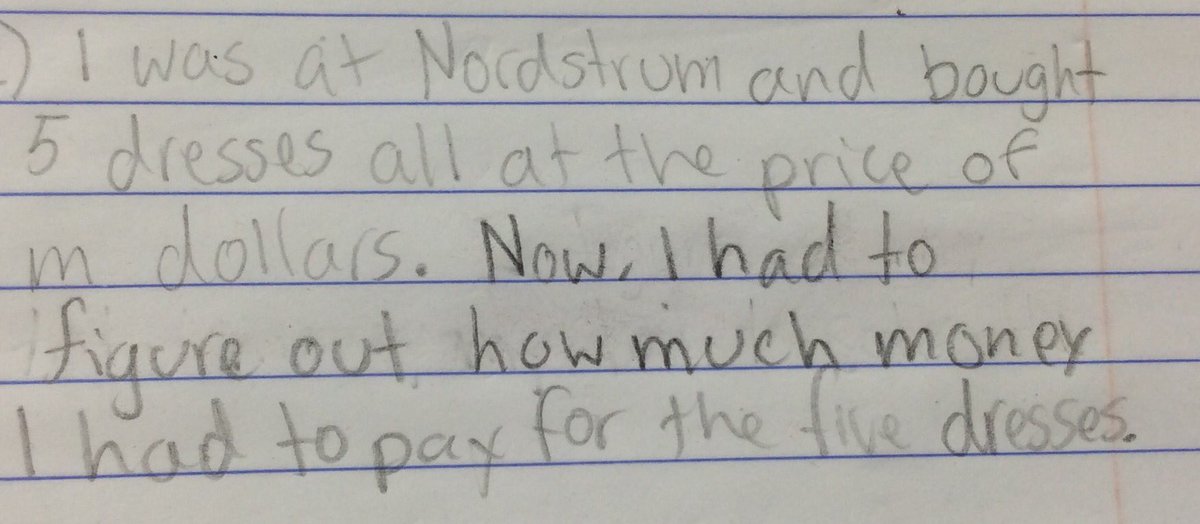 .) I was at Nordstrum and bought
5 dresses all at the price of
m dollars. Now, I had to
figure out how much money
I had to pay for the five dresses.